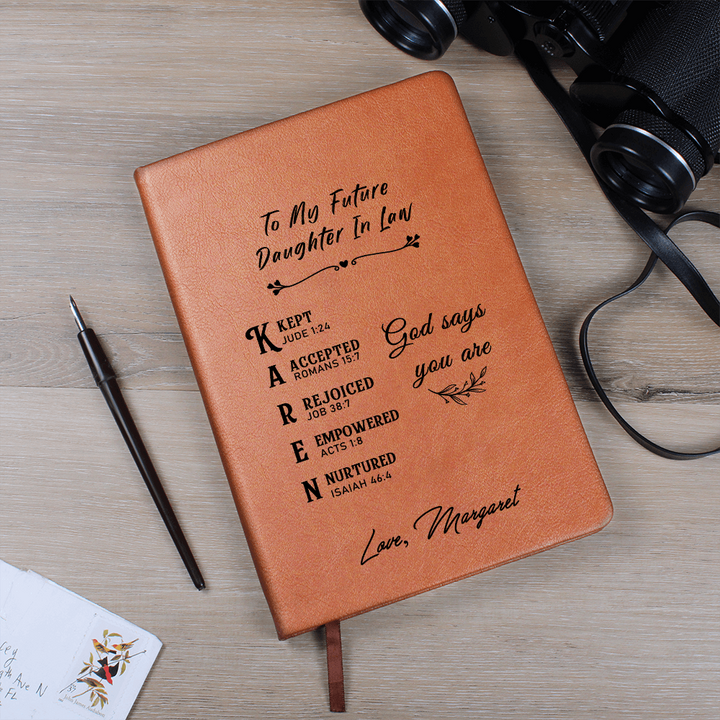 To My Future
Daughter In Law
K KEPT
JUDE 1:24
A ACCEPTED
ROMANS 15:7
R REJOICED
JOB 38:7
E EMPOWERED
ACTS 1:8
N NURTURED
ISAIAH 46:4
God says
you are
Love, Margaret
Ave N
FL